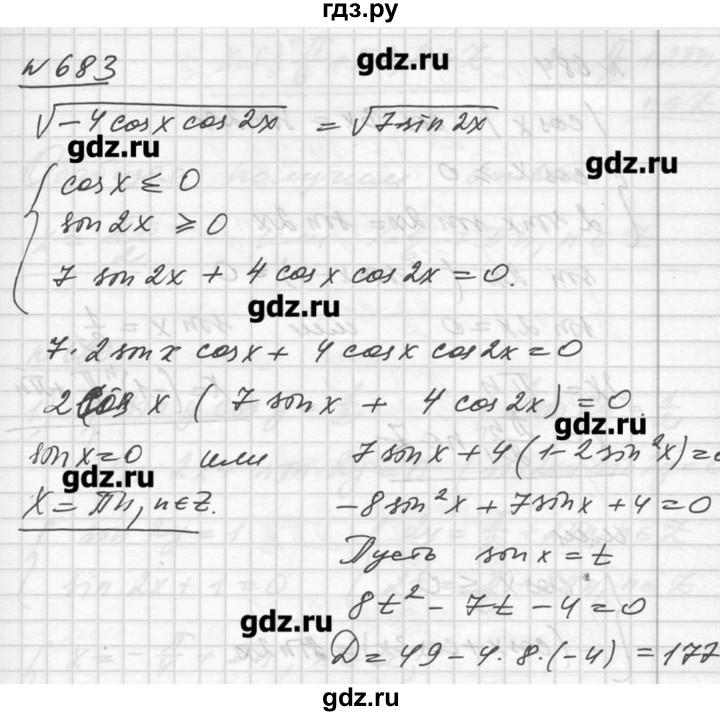 гдз.ру
N 683
gdz.ru
√(-4cosx cos2x) = √(7sin2x)
gdz.ru
gdz.ru
{ cosx ≤ 0
sin2x ≥ 0
7 sin2x + 4cosx cos2x = 0.
gdz.ru
7·2sinx cosx + 4cosx cos2x = 0
2cosx ( 7sinx + 4cos2x) = 0
gdz.ru
sinx=0 или 7sinx + 4(1-2sin²x)=0
gdz.ru
x = πn, n∈Z. -8sin²x + 7sinx + 4 = 0
Пусть sinx = t
8t² - 7t - 4 = 0
gdz.ru
D = 49 - 4·8·(-4) = 177
gdz.ru